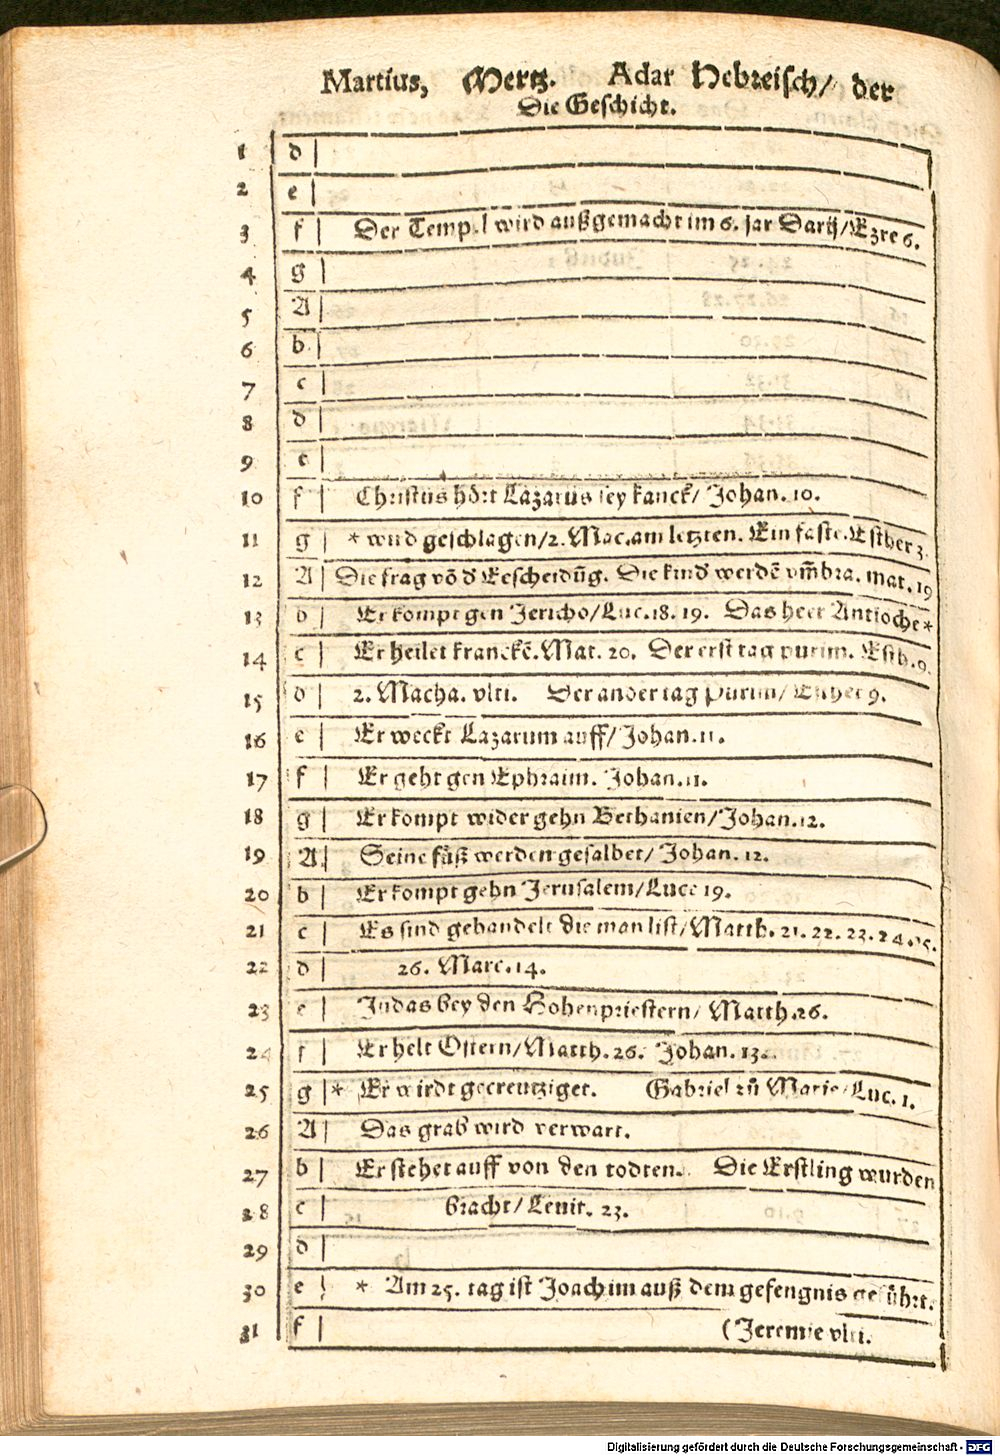 Martius, Mertz. Adar Hebreisch/ der
Die Geschicht.
1 d
2 e
3 f Der Tempel wird außgemacht im 6. jar Darij/Ezre 6.
4 g
5 A
6 b
7 c
8 d
9 e
10 f Christus hört Lazarus sey kranck/ Johan. 10.
11 g * wird geschlagen/2. Mac.am letzten. Ein faste.Esther 3.
12 A Die frag võ d Eescheidũg. Die kind werdẽ vm̃bra. mat. 19
13 b Er kompt gen Jericho/Luc.18. 19. Das heer Antioche*
14 c Er heilet kranckẽ.Mat. 20. Der erst tag purim. Esth.9.
15 d 2. Macha. vlti. Der ander tag Purim/ Esther 9.
16 e Er weckt Lazarum auff/Johan.11.
17 f Er geht gen Ephraim. Johan.11.
18 g Er kompt wider gehn Bethanien/Johan.12.
19 A Seine füß werden gesalbet/ Johan. 12.
20 b Er kompt gehn Jerusalem/Luce 19.
21 c Es sind gehandelt die man list/Matth. 21. 22. 23. 24.25.
22 d 26. Marc.14.
23 e Judas bey den Hohenpriestern/ Matth.26.
24 f Er helt Ostern/Matth. 26. Johan. 13.
25 g * Er wirdt gecreutziget. Gabriel zů Marie/Luc. 1.
26 A Das grab wird verwart.
27 b Er stehet auff von den todten. Die Erstling wurden
28 c bracht/Leuit. 23.
29 d
30 e * Am 25. tag ist Joachim auß dem gefengnis geführt.
31 f (Jeremie vlti.
Digitalisierung gefördert durch die Deutsche Forschungsgemeinschaft - DFG